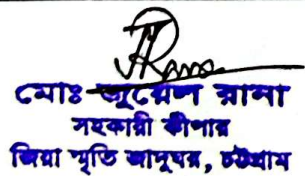 মোঃ জুয়েল রানা
সহকারী কীপার
জিয়া স্মৃতি জাদুঘর, চট্টগ্রাম